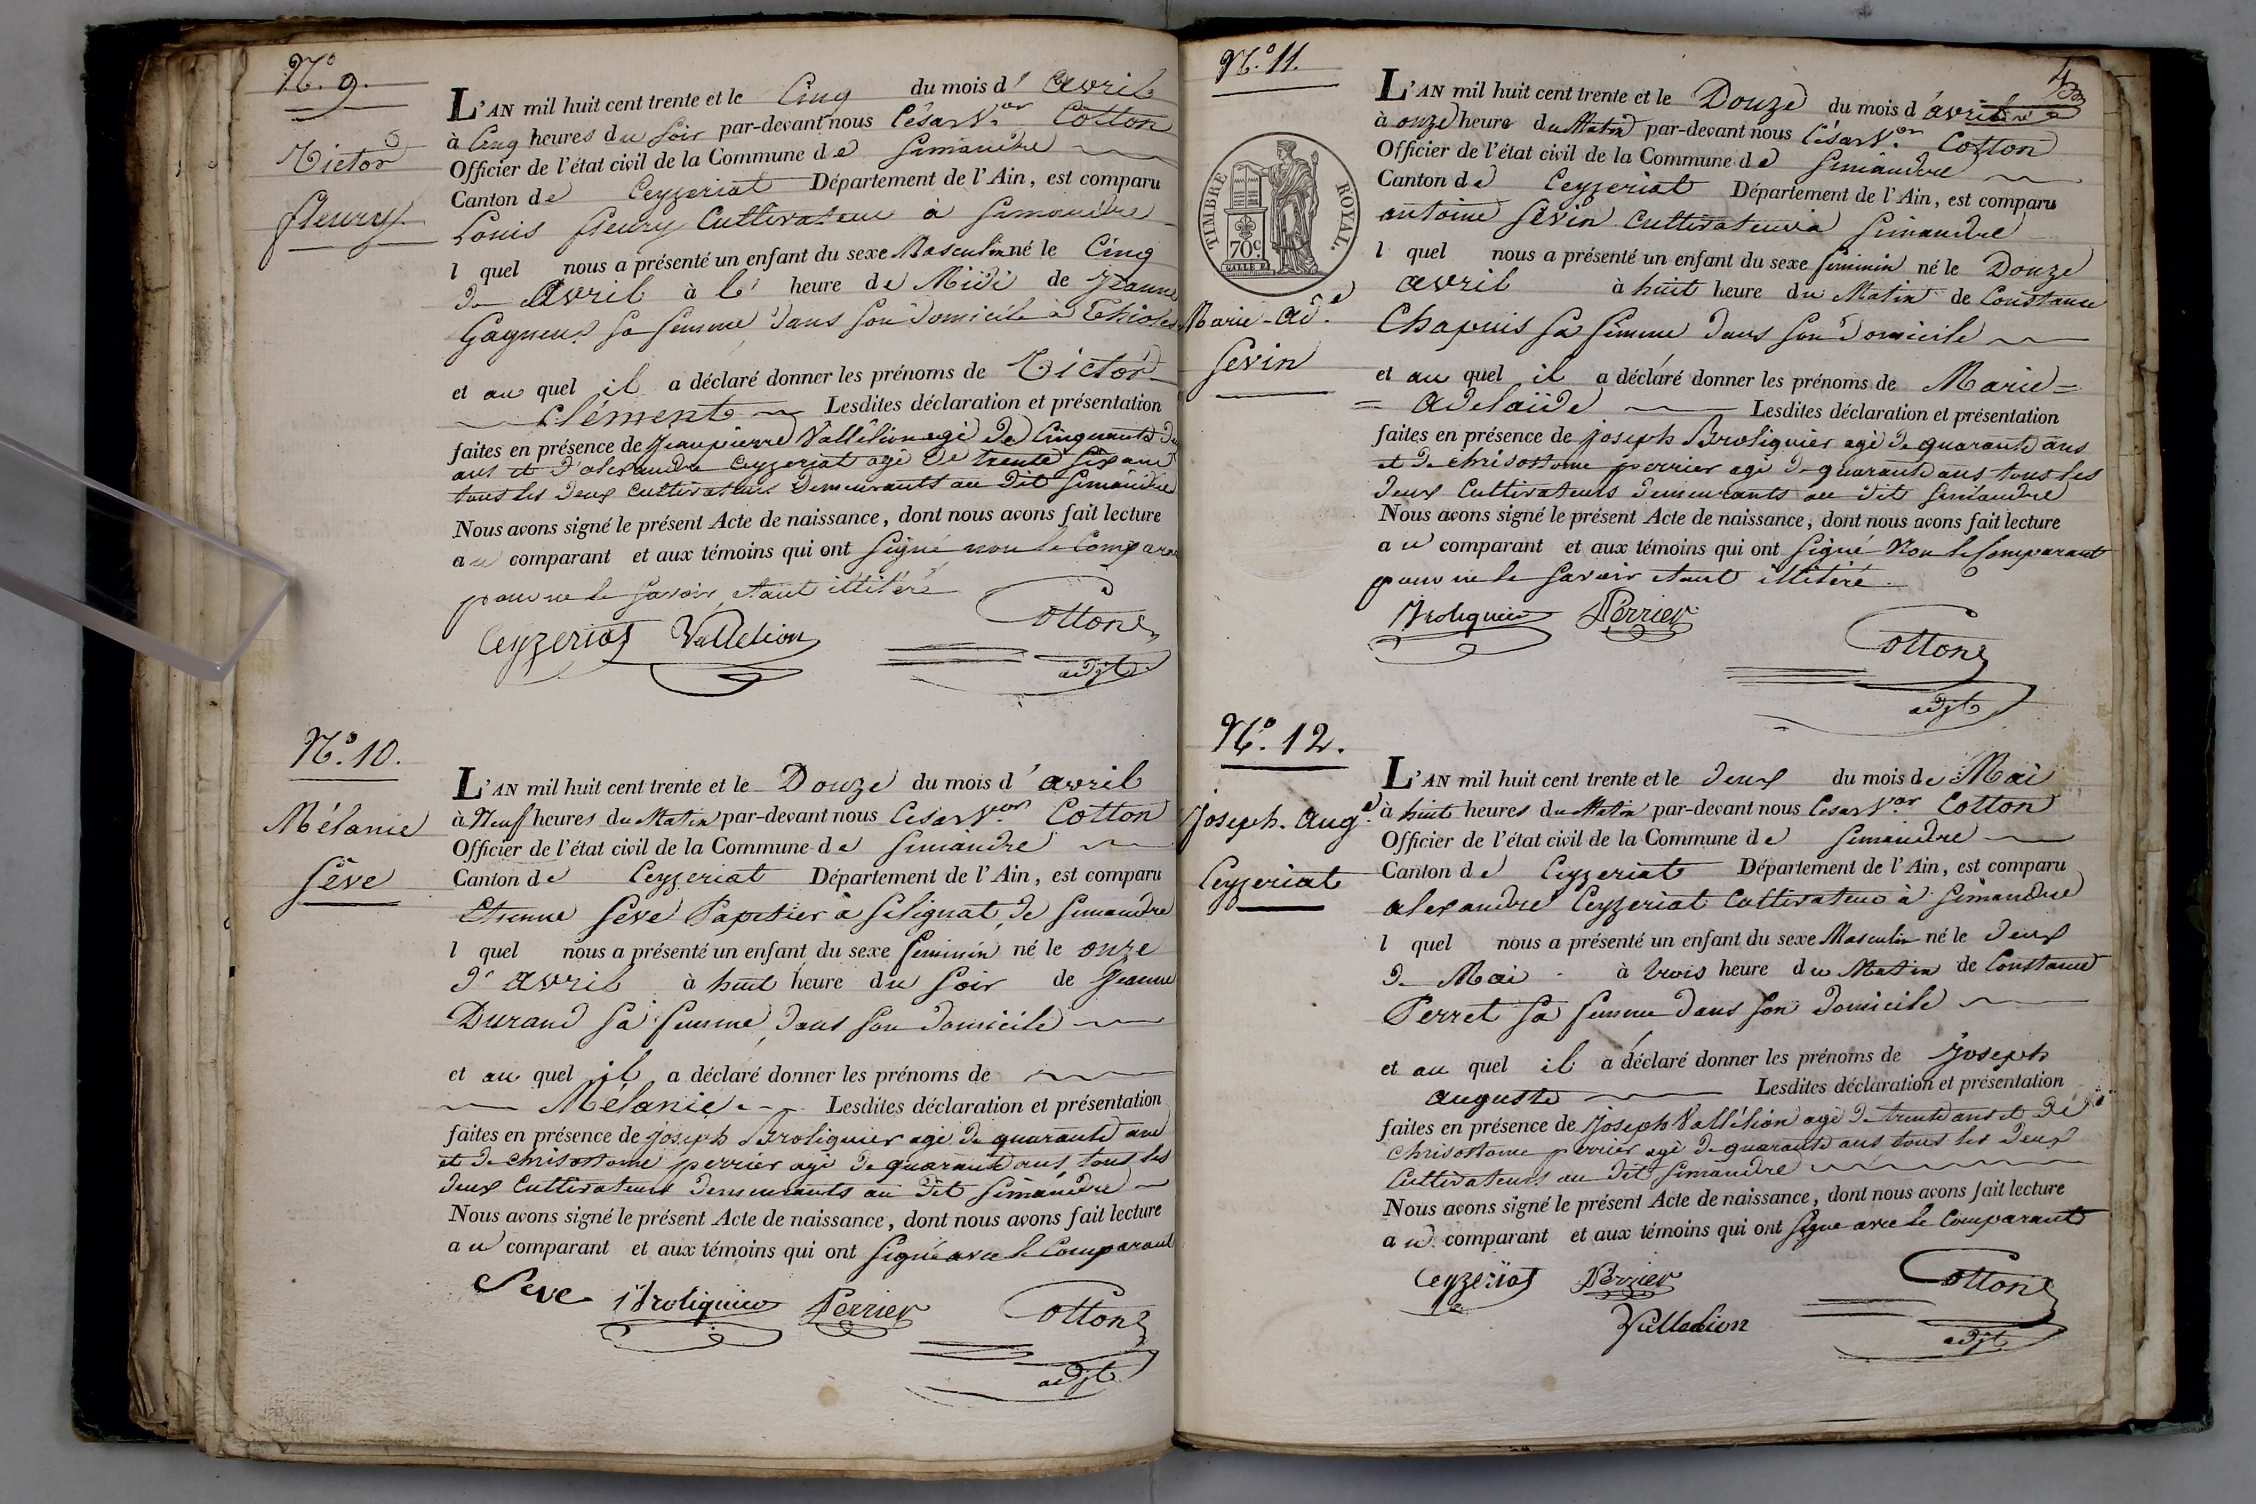 N.º 9.
Victor
fleury
L'AN mil huit cent trente et le Cinq du mois d' avril
à Cinq heures du soir par-devant nous César V.or Cotton
Officier de l'état civil de la Commune de Simandre
Canton de Ceyzeriat Département de l'Ain, est comparu
Louis fleury Cultivateur à Simandre
l quel nous a présenté un enfant du sexe Masculin né le Cinq
de Avril à l' heure de Midi de Jeanne
Gagneur sa femme, dans son domicile à
et au quel il a déclaré donner les prénoms de Victor
Clément Lesdites déclaration et présentation
faites en présence de Jean pierre Vallélion agé de Cinquante
ans et d'alexandre Ceyzeriat agé de trente six ans
tous les deux cultivateurs demeurants au dit Simandre
Nous avons signé le présent Acte de naissance, dont nous avons fait lecture
au comparant et aux témoins qui ont signé non le Comparant
pour ne le savoir étant illitéré
Ceyzeriat Vallelion Cotton
adjt
N.º 10.
Mélanie
Séve
L'AN mil huit cent trente et le Douze du mois d' avril
à Neuff heures du Matin par-devant nous César V.or Cotton
Officier de l'état civil de la Commune de Simandre
Canton de Ceyzeriat Département de l'Ain, est comparu
Etienne Séve Papetier à Sélignat, de Simandre
l quel nous a présenté un enfant du sexe féminin né le onze
d' avril à huit heure du soir de Jeanne
Durand sa femme, dans son domicile
et au quel il a déclaré donner les prénoms de
Mélanie Lesdites déclaration et présentation
faites en présence de joseph Broliquier agé de quarante ans
et de chrisostome perrier agé de quarante ans, tous les
deux Cultivateurs demeurants au dit Simandre
Nous avons signé le présent Acte de naissance, dont nous avons fait lecture
au comparant et aux témoins qui ont signé avec le Comparant
Seve Broliquier Perrier Cotton
adjt
43
N.º 11.
TIMBRE ROYAL.
70c.
Marie-Ad.e
Sevin
L'AN mil huit cent trente et le Douze du mois d'avril
à onze heure du Matin par-devant nous César V.or Cotton
Officier de l'état civil de la Commune de Simandre
Canton de Ceyzeriat Département de l'Ain, est comparu
antoine Sevin Cultivateur à Simandre
l quel nous a présenté un enfant du sexe féminin né le Douze
avril à huit heure du Matin de Constance
Chapuis sa femme dans son domicile
et au quel il a déclaré donner les prénoms de Marie=
= Adelaïde Lesdites déclaration et présentation
faites en présence de joseph Broliquier agé de quarante ans
et de chrisostome perrier agé de quarante ans tous les
deux Cultivateurs demeurants au dit Simandre
Nous avons signé le présent Acte de naissance, dont nous avons fait lecture
au comparant et aux témoins qui ont signé Non le Comparant
pour ne le savoir étant illitéré
Broliquier Perrier
Cotton
adjt
N.º 12.
joseph. Aug.e
Ceyzeriat
L'AN mil huit cent trente et le deux du mois de Mai
à huit heures du Matin par-devant nous César V.or Cotton
Officier de l'état civil de la Commune de Simandre
Canton de Ceyzeriat Département de l'Ain, est comparu
alexandre Ceyzeriat Cultivateur à Simandre
l quel nous a présenté un enfant du sexe Masculin né le deux
de Mai à trois heure du Matin de Constance
Perret sa femme dans son domicile
et au quel il a déclaré donner les prénoms de Joseph
auguste Lesdites déclaration et présentation
faites en présence de joseph Vallélion agé de trente ans et de
chrisostome perrier agé de quarante ans, tous les deux
Cultivateurs au dit Simandre
Nous avons signé le présent Acte de naissance, dont nous avons fait lecture
au comparant et aux témoins qui ont signé avec le Comparant
Ceyzeriat Perrier Cotton
Vallelion adjt